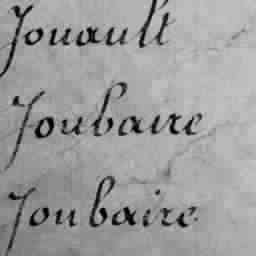 Jouault
Joubaire
Joubaire